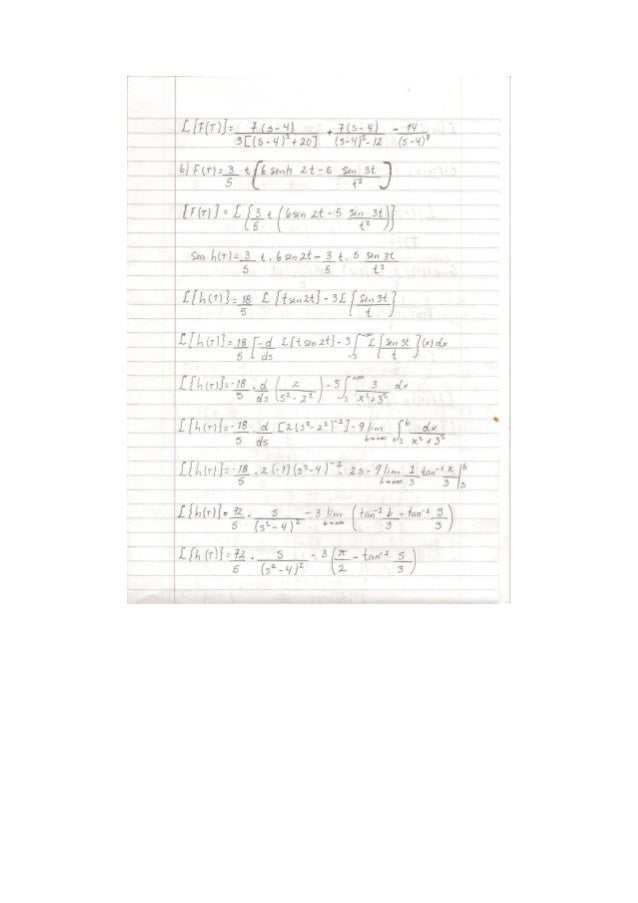 £{F(T)}= 7(s-4) / 3[(s-4)²+20] + 7(s-4) / (s-4)²-12 - 14 / (s-4)⁸
b) F(T)= 3/5 t (6 senh 2t - 5 sen 3t / t²)
{F(T)} = £{3/5 t (6 sen 2t - 5 sen 3t / t²)}
Sea h(T)= 3/5 t . 6 sen 2t - 3/5 t . 5 sen 3t / t²
£{h(T)}= 18/5 £{t sen 2t} - 3£{sen 3t / t}
£{h(T)}= 18/5 [-d/ds £{t sen 2t} - 3∫ₛ⁺∞ £{sen 3t / t}(x) dx
£{h(T)}= -18/5 . d/ds (2 / s²-2²) - 3∫ₛ⁺∞ 3 / x²+3² dx
£{h(T)}= -18/5 . d/ds [2(s²-2²)⁻¹] - 9 lim b→+∞ ∫ₛᵇ dx / x²+3²
£{h(T)}= -18/5 . 2(-1)(s²-4)⁻² . 2s - 9 lim b→+∞ 1/3 tan⁻¹ x/3 |ᵇₛ
£{h(T)}= 72/5 . s / (s²-4)² - 3 lim b→+∞ (tan⁻¹ b/3 - tan⁻¹ s/3)
£{h(T)}= 72/5 . s / (s²-4)² - 3 (π/2 - tan⁻¹ s/3)